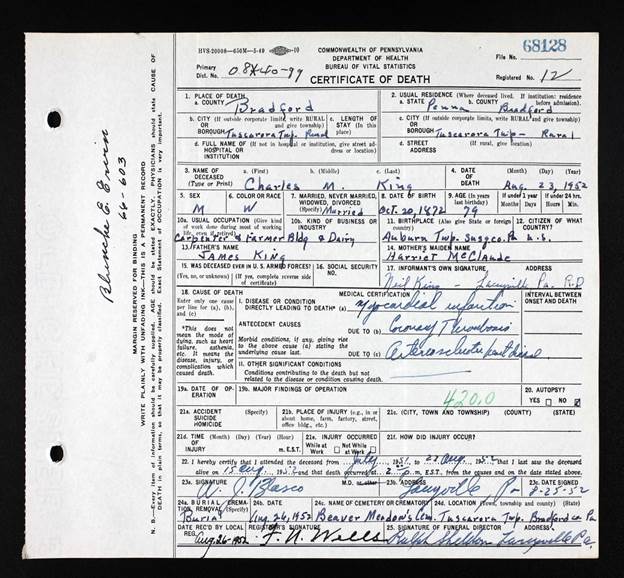 HVS-20008—650M—5-49
COMMONWEALTH OF PENNSYLVANIA
DEPARTMENT OF HEALTH
BUREAU OF VITAL STATISTICS
CERTIFICATE OF DEATH
File No. 68128
Primary Dist. No.
Registered No. 12
1. PLACE OF DEATH
a. COUNTY Bradford
2. USUAL RESIDENCE (Where deceased lived. If institution: residence before admission).
a. STATE Penna b. COUNTY Bradford
b. CITY (If outside corporate limits, write RURAL and give township) OR BOROUGH Tuscarora Twp. Rural
c. LENGTH OF STAY (In this place)
c. CITY (If outside corporate limits, write RURAL and give township) OR BOROUGH Tuscarora Twp- Rural
d. FULL NAME OF (If not in hospital or institution, give street address or location) HOSPITAL OR INSTITUTION
d. STREET ADDRESS (If rural, give location)
3. NAME OF DECEASED (Type or Print) a. (First) Charles b. (Middle) M. c. (Last) King
4. DATE OF DEATH (Month) (Day) (Year) Aug. 23, 1952
5. SEX M
6. COLOR OR RACE W
7. MARRIED, NEVER MARRIED, WIDOWED, DIVORCED (Specify) Married
8. DATE OF BIRTH Oct. 20, 1872
9. AGE (In years last birthday) 79
If under 1 year Months Days If under 24 hrs. Hours Min.
10a. USUAL OCCUPATION (Give kind of work done during most of working life, even if retired) Carpenter & Farmer
10b. KIND OF BUSINESS OR INDUSTRY Bldg & Dairy
11. BIRTHPLACE (Also give State or foreign country) Auburn Twp. Susq Co. Pa
12. CITIZEN OF WHAT COUNTRY? U.S.
13. FATHER'S NAME James King
14. MOTHER'S MAIDEN NAME Harriet McClaude
15. WAS DECEASED EVER IN U. S. ARMED FORCES? (Yes, no, or unknown) (If yes, complete reverse side of certificate)
16. SOCIAL SECURITY NO.
17. INFORMANT'S OWN SIGNATURE Neil King - Laceyville Pa. R.D
18. CAUSE OF DEATH
Enter only one cause per line for (a), (b), and (c)
MEDICAL CERTIFICATION
INTERVAL BETWEEN ONSET AND DEATH
I. DISEASE OR CONDITION DIRECTLY LEADING TO DEATH* (a) Myocardial infarction
*This does not mean the mode of dying, such as heart failure, asthenia, etc. It means the disease, injury, or complication which caused death.
ANTECEDENT CAUSES
DUE TO (b) Coronary Thrombosis
Morbid conditions, if any, giving rise to the above cause (a) stating the underlying last.
DUE TO (c)
II. OTHER SIGNIFICANT CONDITIONS
Conditions contributing to the death but not related to the disease or condition causing death.
19a. DATE OF OPERATION
19b. MAJOR FINDINGS OF OPERATION
420.0
20. AUTOPSY?
YES NO
21a. ACCIDENT SUICIDE HOMICIDE (Specify)
21b. PLACE OF INJURY (e.g., in or about home, farm, factory, street, office bldg., etc.)
21c. (CITY, TOWN AND TOWNSHIP) (COUNTY) (STATE)
21d. TIME OF INJURY (Month) (Day) (Year) (Hour) m. E.S.T.
21e. INJURY OCCURRED While at Work Not While at Work
21f. HOW DID INJURY OCCUR?
22. I hereby certify that I attended the deceased from July 1951 to 23 Aug. 1952 that I last saw the deceased
alive on 15 Aug 1952 and that death occurred at m. E.S.T., from the causes and on the date stated above.
23a. SIGNATURE M.D. or other
23b. ADDRESS Laceyville Pa
23c. DATE SIGNED 8-25-52
24a. BURIAL, CREMATION, REMOVAL (Specify) Burial
24b. DATE Aug 26, 1952
24c. NAME OF CEMETERY OR CREMATORY Beaver Meadows Cem.
24d. LOCATION (Town, township and county) (State) Tuscarora Twp. Bradford Co. Pa
DATE REC'D BY LOCAL REG. Aug. 26-1952
REGISTRAR'S SIGNATURE F. N. Wells
25. SIGNATURE OF FUNERAL DIRECTOR ADDRESS Ralph Sheldon Laceyville Pa.
Blanche E. Ervin
66-603
MARGIN RESERVED FOR BINDING
WRITE PLAINLY WITH UNFADING INK—THIS IS A PERMANENT RECORD
N. B.—Every item of information should be carefully supplied. AGE should be stated EXACTLY. PHYSICIANS should state CAUSE OF DEATH in plain terms, so that it may be properly classified. Exact Statement of OCCUPATION is very important.